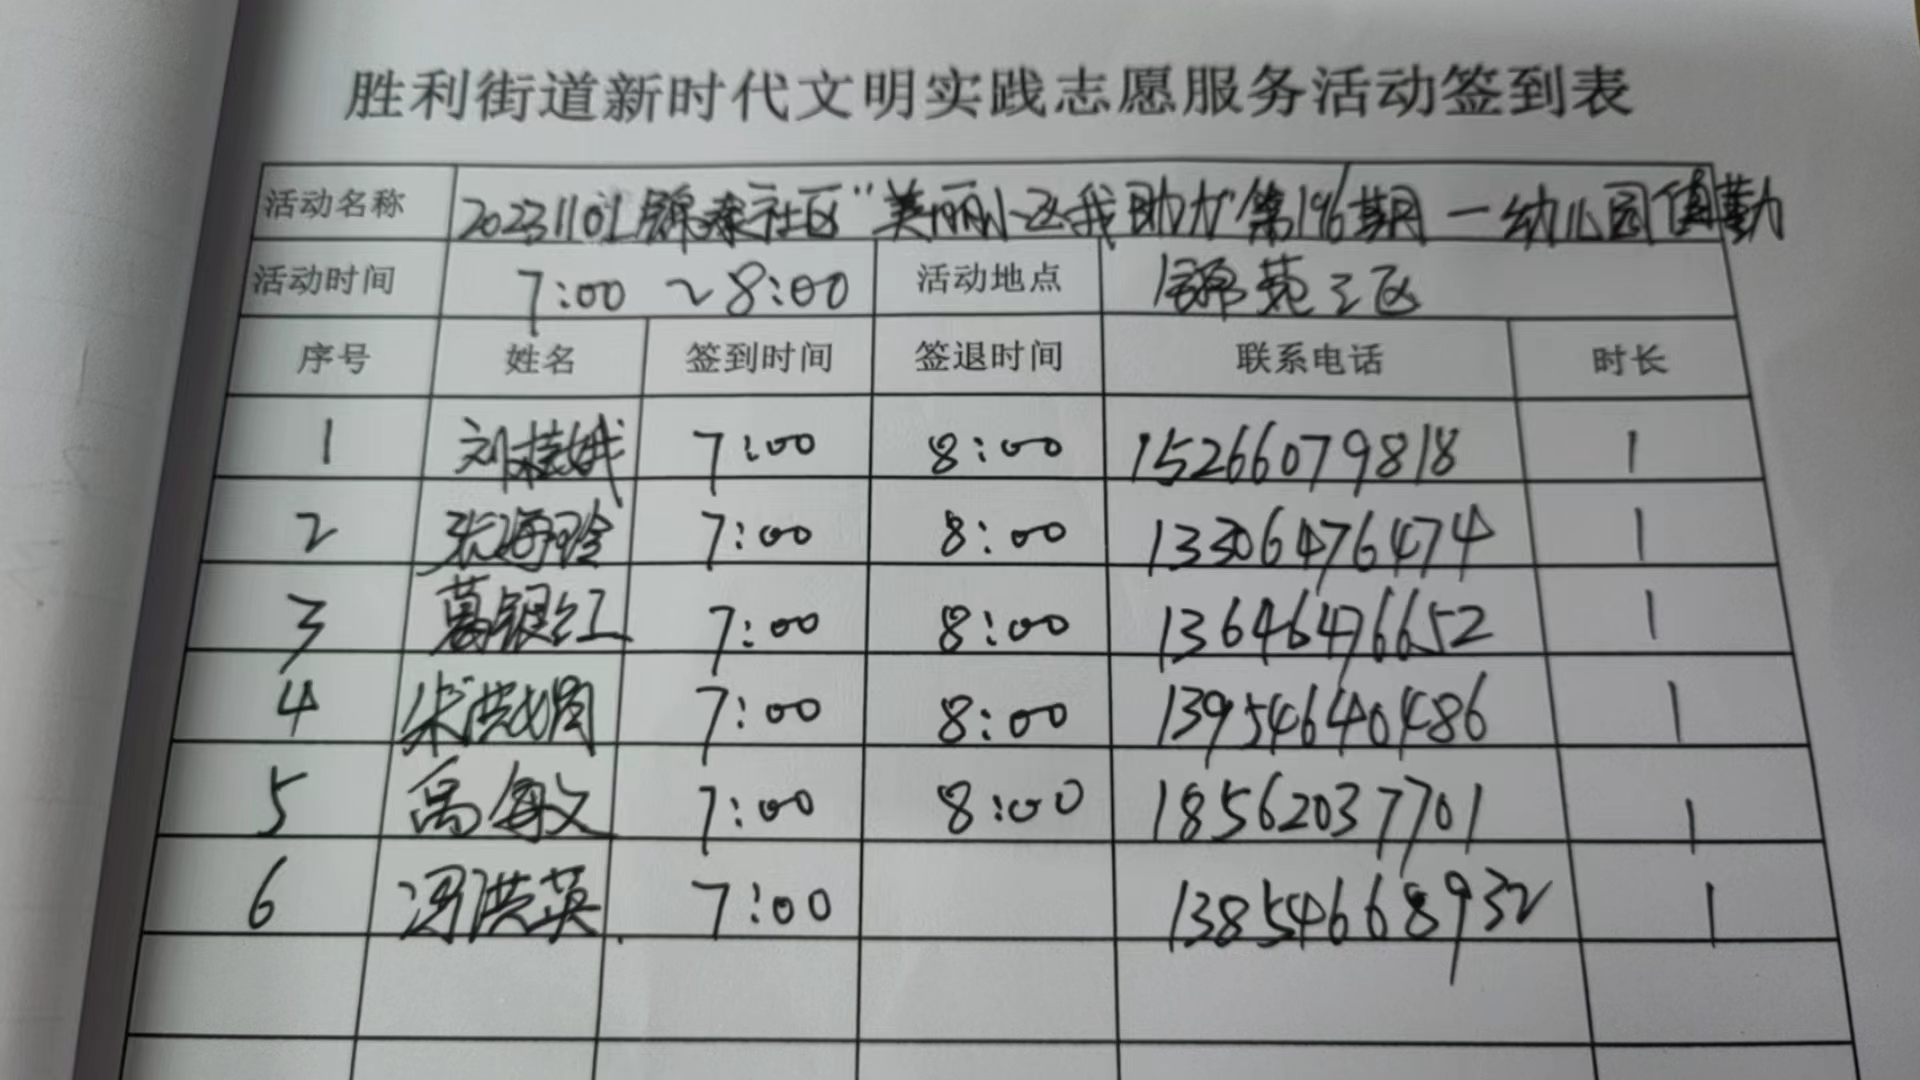 胜利街道新时代文明实践志愿服务活动签到表
活动名称 20231101锦泰社区“美丽小区我助力”第196期一幼儿园值勤
活动时间 7:00 ~8:00 活动地点 锦苑三区
序号 姓名 签到时间 签退时间 联系电话 时长
1 刘桂娥 7:00 8:00 15266079818 1
2 张海玲 7:00 8:00 13306476474 1
3 葛银红 7:00 8:00 13646476652 1
4 7:00 8:00 13954640486 1
5 7:00 8:00 18562037701 1
6 冯洪英 7:00 13854668932 1